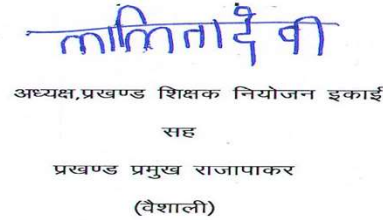 लालिता देवी
अध्यक्ष,प्रखण्ड शिक्षक नियोजन इकाई
सह
प्रखण्ड प्रमुख राजापाकर
(वैशाली)